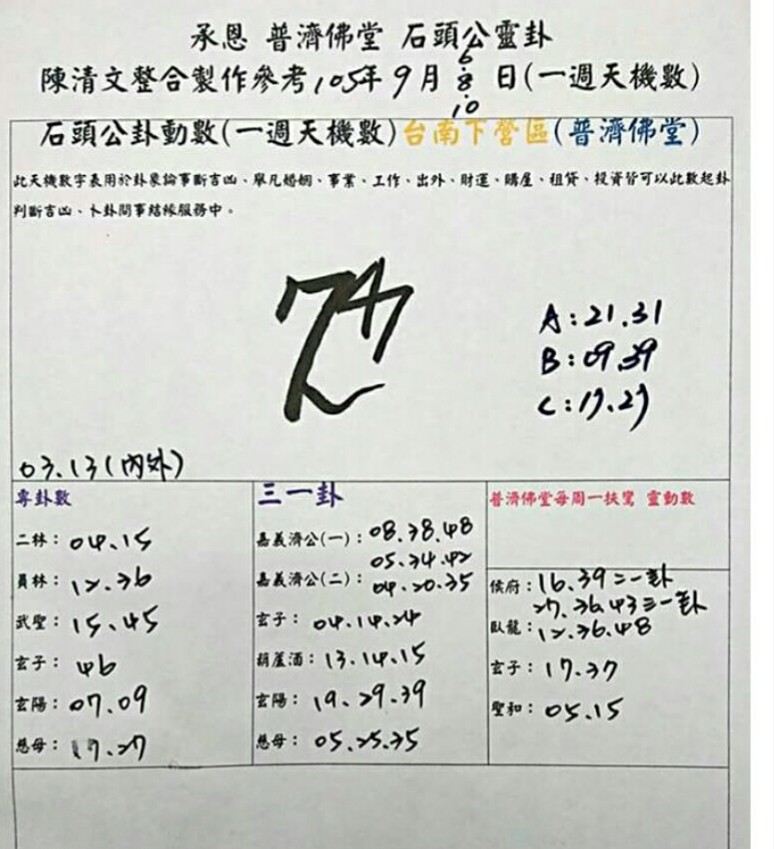 承恩 普濟佛堂 石頭公靈卦
陳清文整合製作參考105年9月6.8.10日(一週天機數)
石頭公卦動數(一週天機數)台南下營區(普濟佛堂)
此天機數字表用於卦象論事斷吉凶、舉凡婚姻、事業、工作、出外、財運、購屋、租貸、投資皆可以此數起卦
判斷吉凶、卜卦問事結緣服務中。
A:21.31
B:09.39
C:17.27
03.13(內外)
專卦數
二林:04.15
員林:12.36
武聖:15.45
玄子:46
玄陽:07.09
慈母:17.27
三一卦
嘉義濟公(一):08.38.48
05.34.42
嘉義濟公(二):04.20.35
玄子:04.14.24
葫蘆酒:13.14.15
玄陽:19.29.39
慈母:05.25.35
普濟佛堂每周一扶鸞 靈動數
侯府:16.39二一卦
27.36.43三一卦
臥龍:12.36.48
玄子:17.37
聖和:05.15